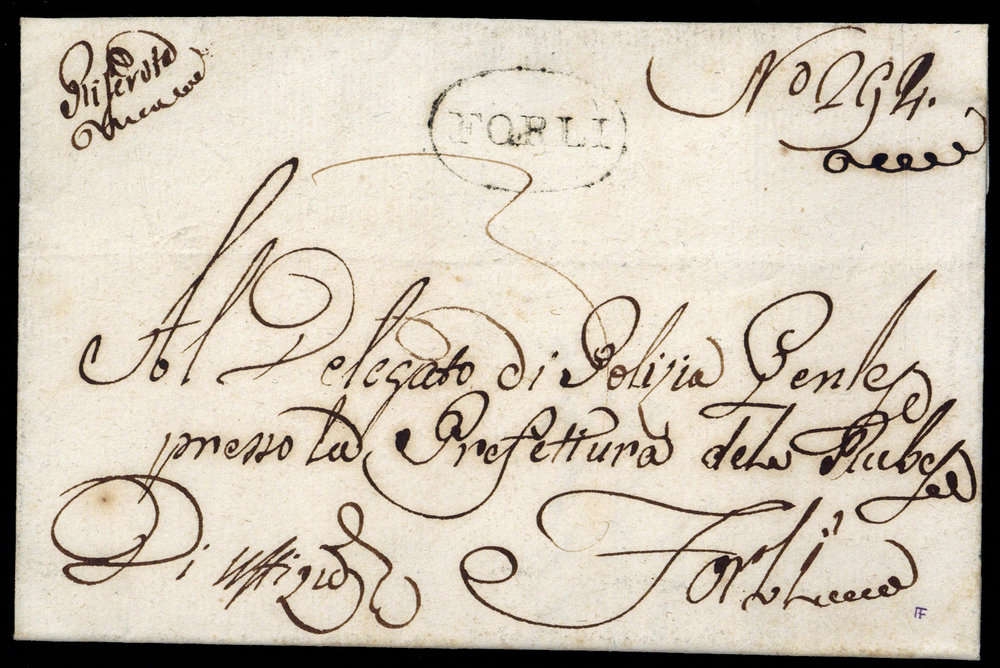 Riservata
FORLI
No 294.
Al Delegato di Polizia Genle
presso la Prefettura del
Di Uffizio
Forlì